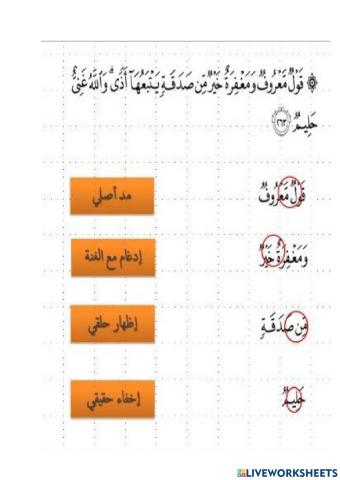 ۞ قَوْلٌ مَّعْرُوفٌ وَمَغْفِرَةٌ خَيْرٌ مِّن صَدَقَةٍ يَتْبَعُهَآ أَذًى ۗ وَٱللَّهُ غَنِىٌّ
حَلِيمٌ ٢٦٣
مد أصلي قَوْلٌ مَّعْرُوفٌ
إدغام مع الغنة وَمَغْفِرَةٌ خَيْرٌ
إظهار حلقي مِّن صَدَقَةٍ
إخفاء حقيقي حَلِيمٌ
LIVEWORKSHEETS